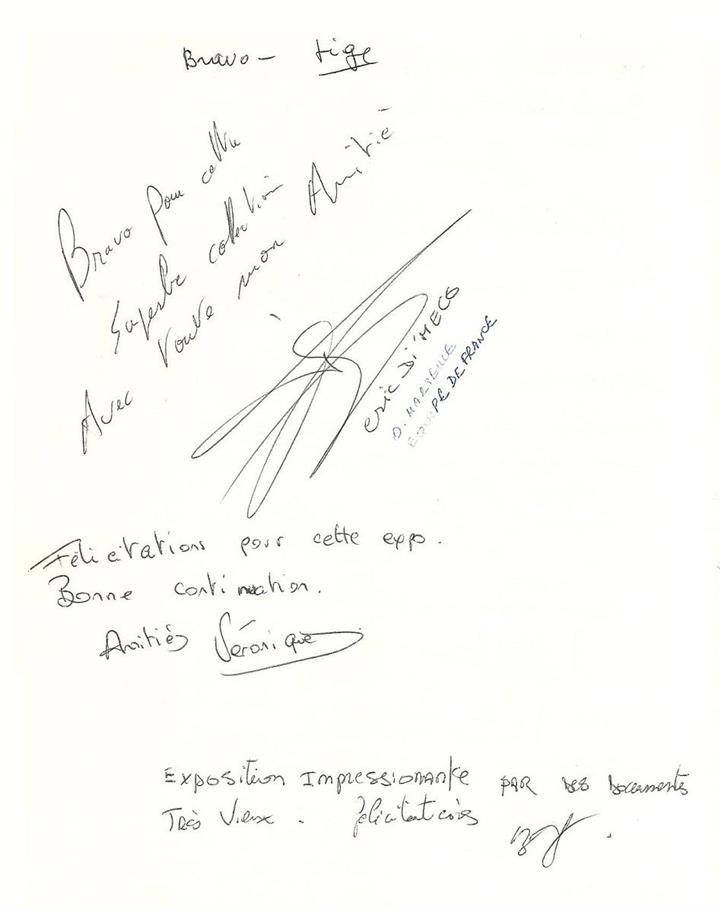 Bravo - tige
Bravo pour cette
superbe collection
Avec toute mon Amitié
eric Di'MECO
O. MARSEILLE
EQUIPE DE FRANCE
Félicitations pour cette expo.
Bonne continuation.
Amitiés Véronique
EXPOSITION IMPRESSIONANTE PAR DES DOCUMENTS
TRÈS Vieux. félicitations